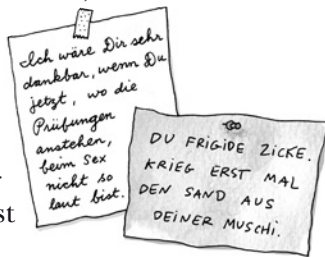 Ich wäre Dir sehr
dankbar, wenn Du
jetzt, wo die
Prüfungen
anstehen,
beim Sex
nicht so
laut bist.
DU FRIGIDE ZICKE.
KRIEG ERST MAL
DEN SAND AUS
DEINER MUSCHI.
st